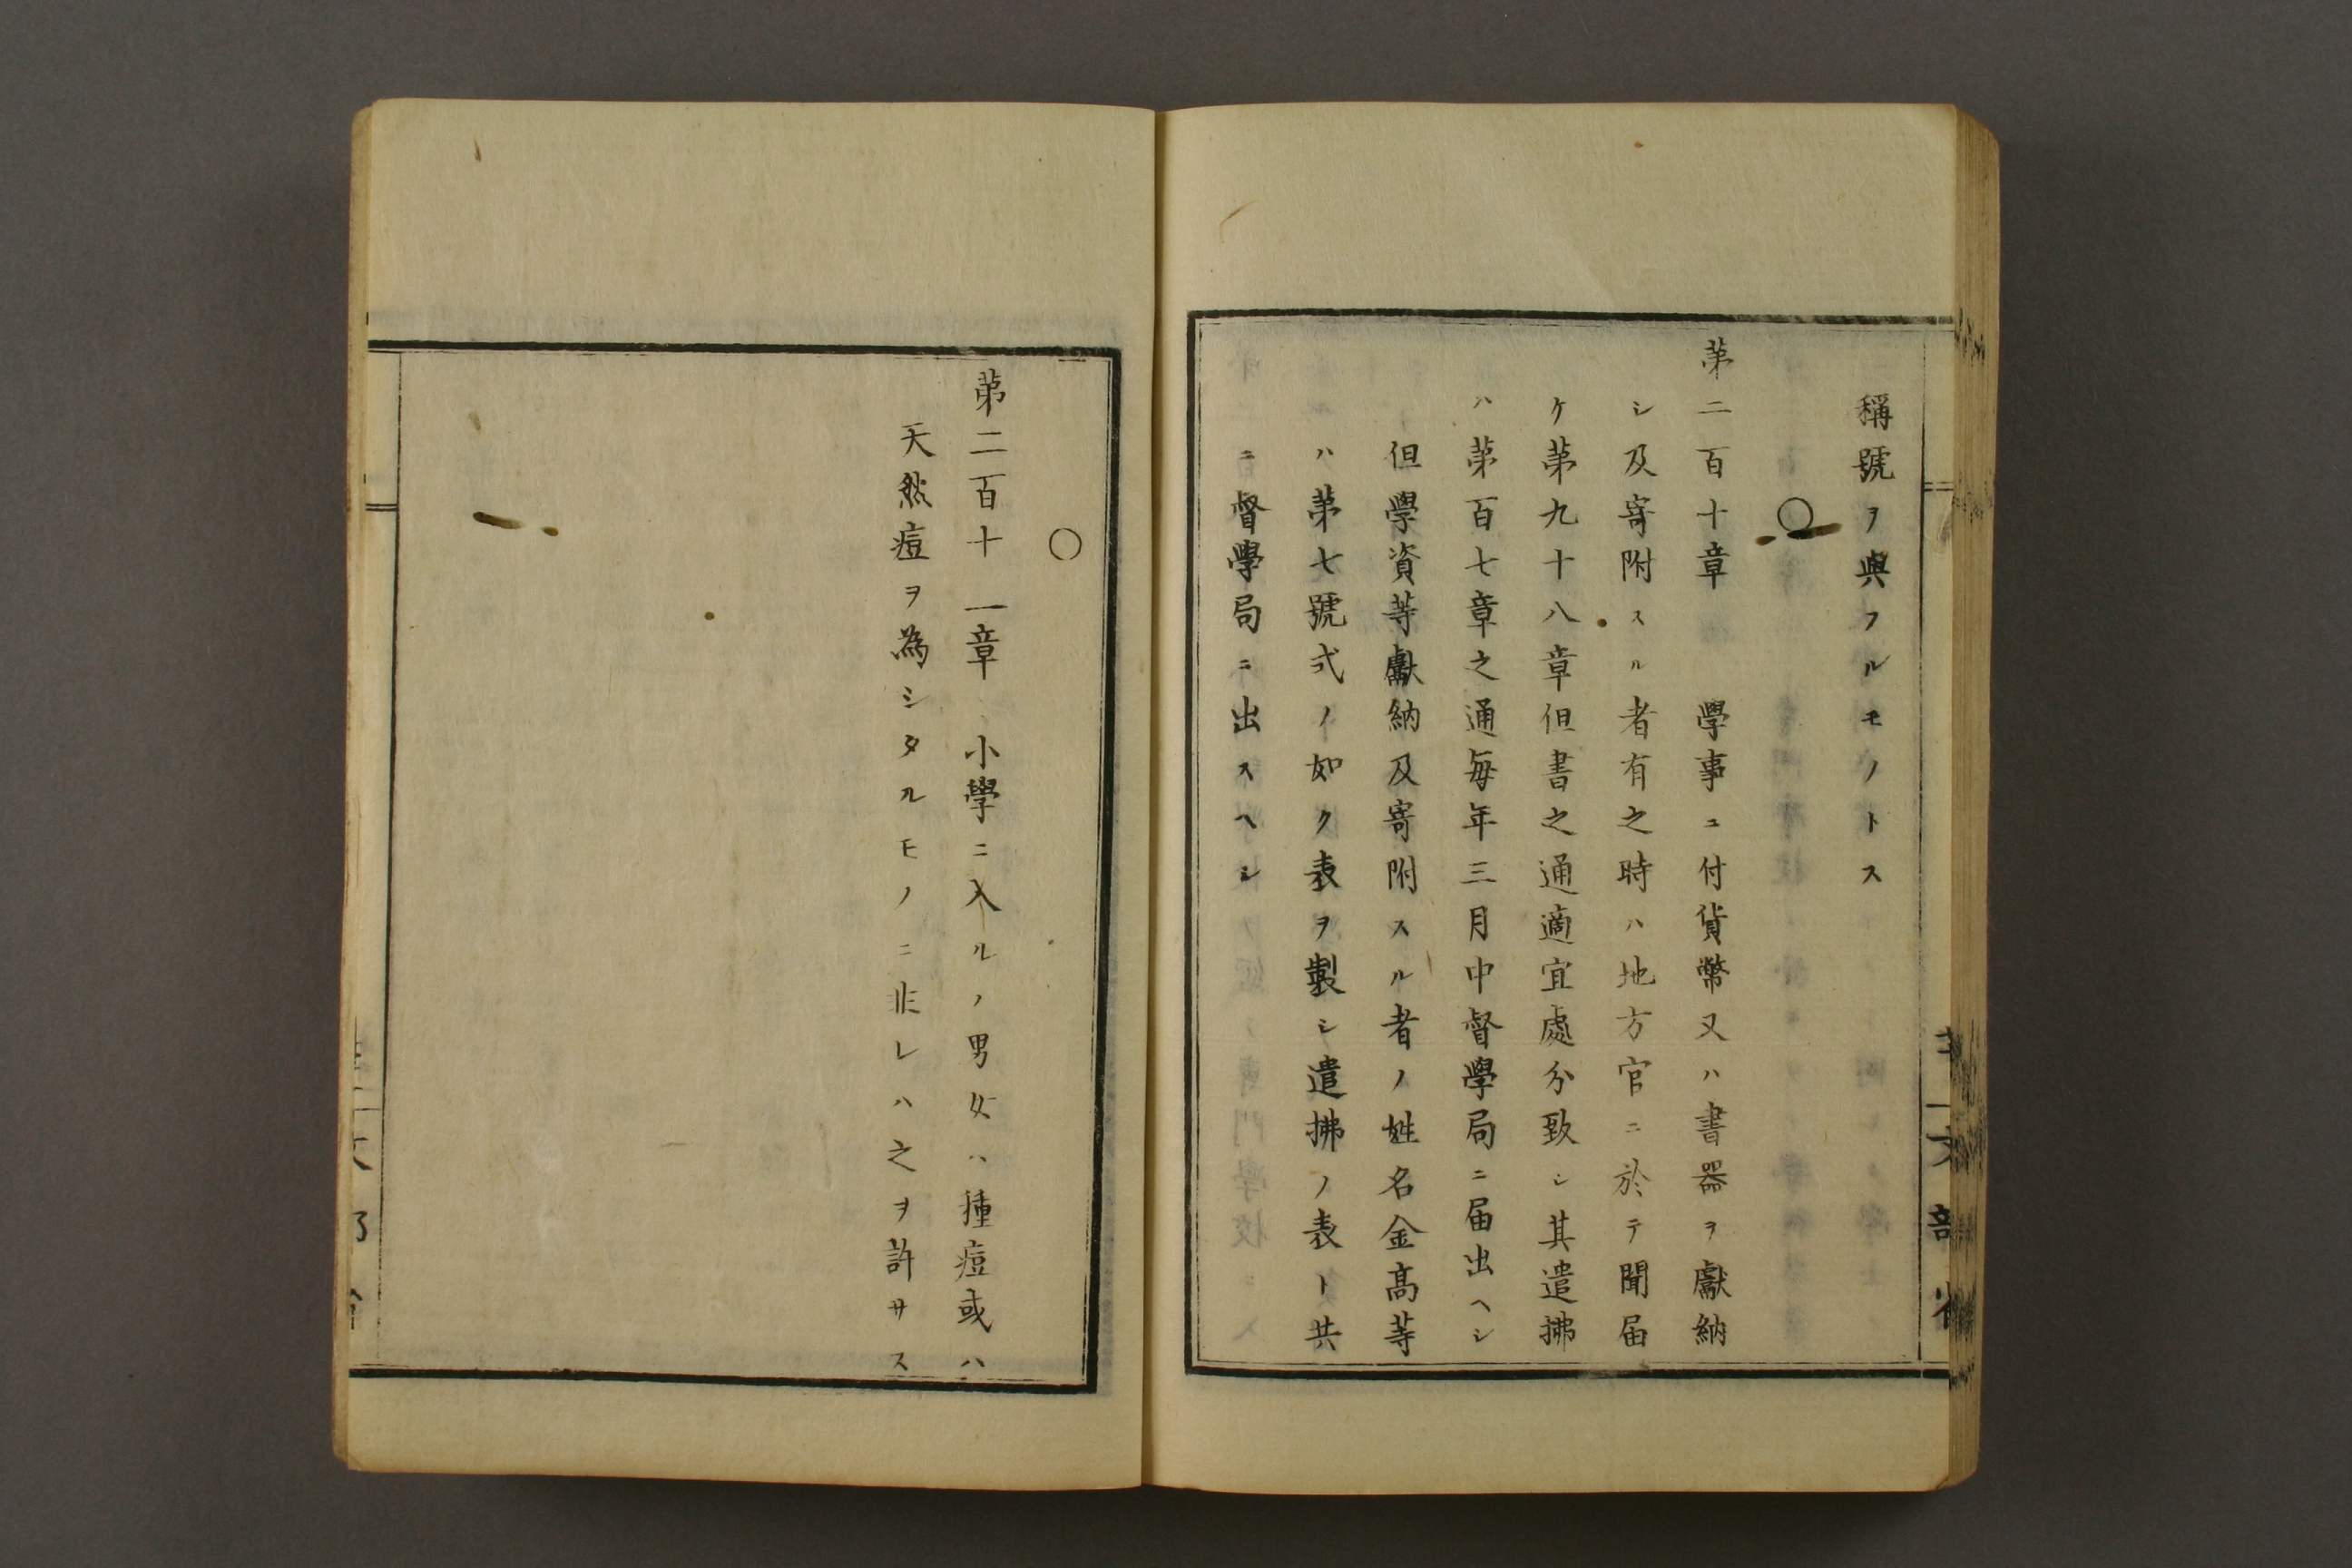 稱號ヲ與フルモノトス
○
第二百十章 學事ニ付貨幣又ハ書器ヲ獻納
シ及寄附スル者有之時ハ地方官ニ於テ聞届
ケ第九十八章但書之通適宜處分致シ其遣拂
ハ第百七章之通毎年三月中督學局ニ届出ヘシ
但學資等獻納及寄附スル者ノ姓名金髙等
ハ第七號式ノ如ク表ヲ製シ遣拂ノ表ト共
ニ督學局ニ出スヘシ
文部省
○
第二百十一章 小學ニ入ルノ男女ハ種痘或ハ
天然痘ヲ為シタルモノニ非レハ之ヲ許サス